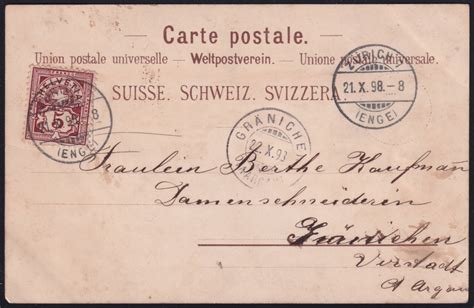 Carte postale.
Union postale universelle – Weltpostverein. – Unione postale universale.
SUISSE. SCHWEIZ. SVIZZERA
HELVETIA
5
98–8
(ENGE)
ZÜRICH
21.X.98.–8
(ENGE)
GRÄNICHEN
22.X.93
Fräulein Berthe Kaufmann
Damenschneiderin
Gränichen
Aargau